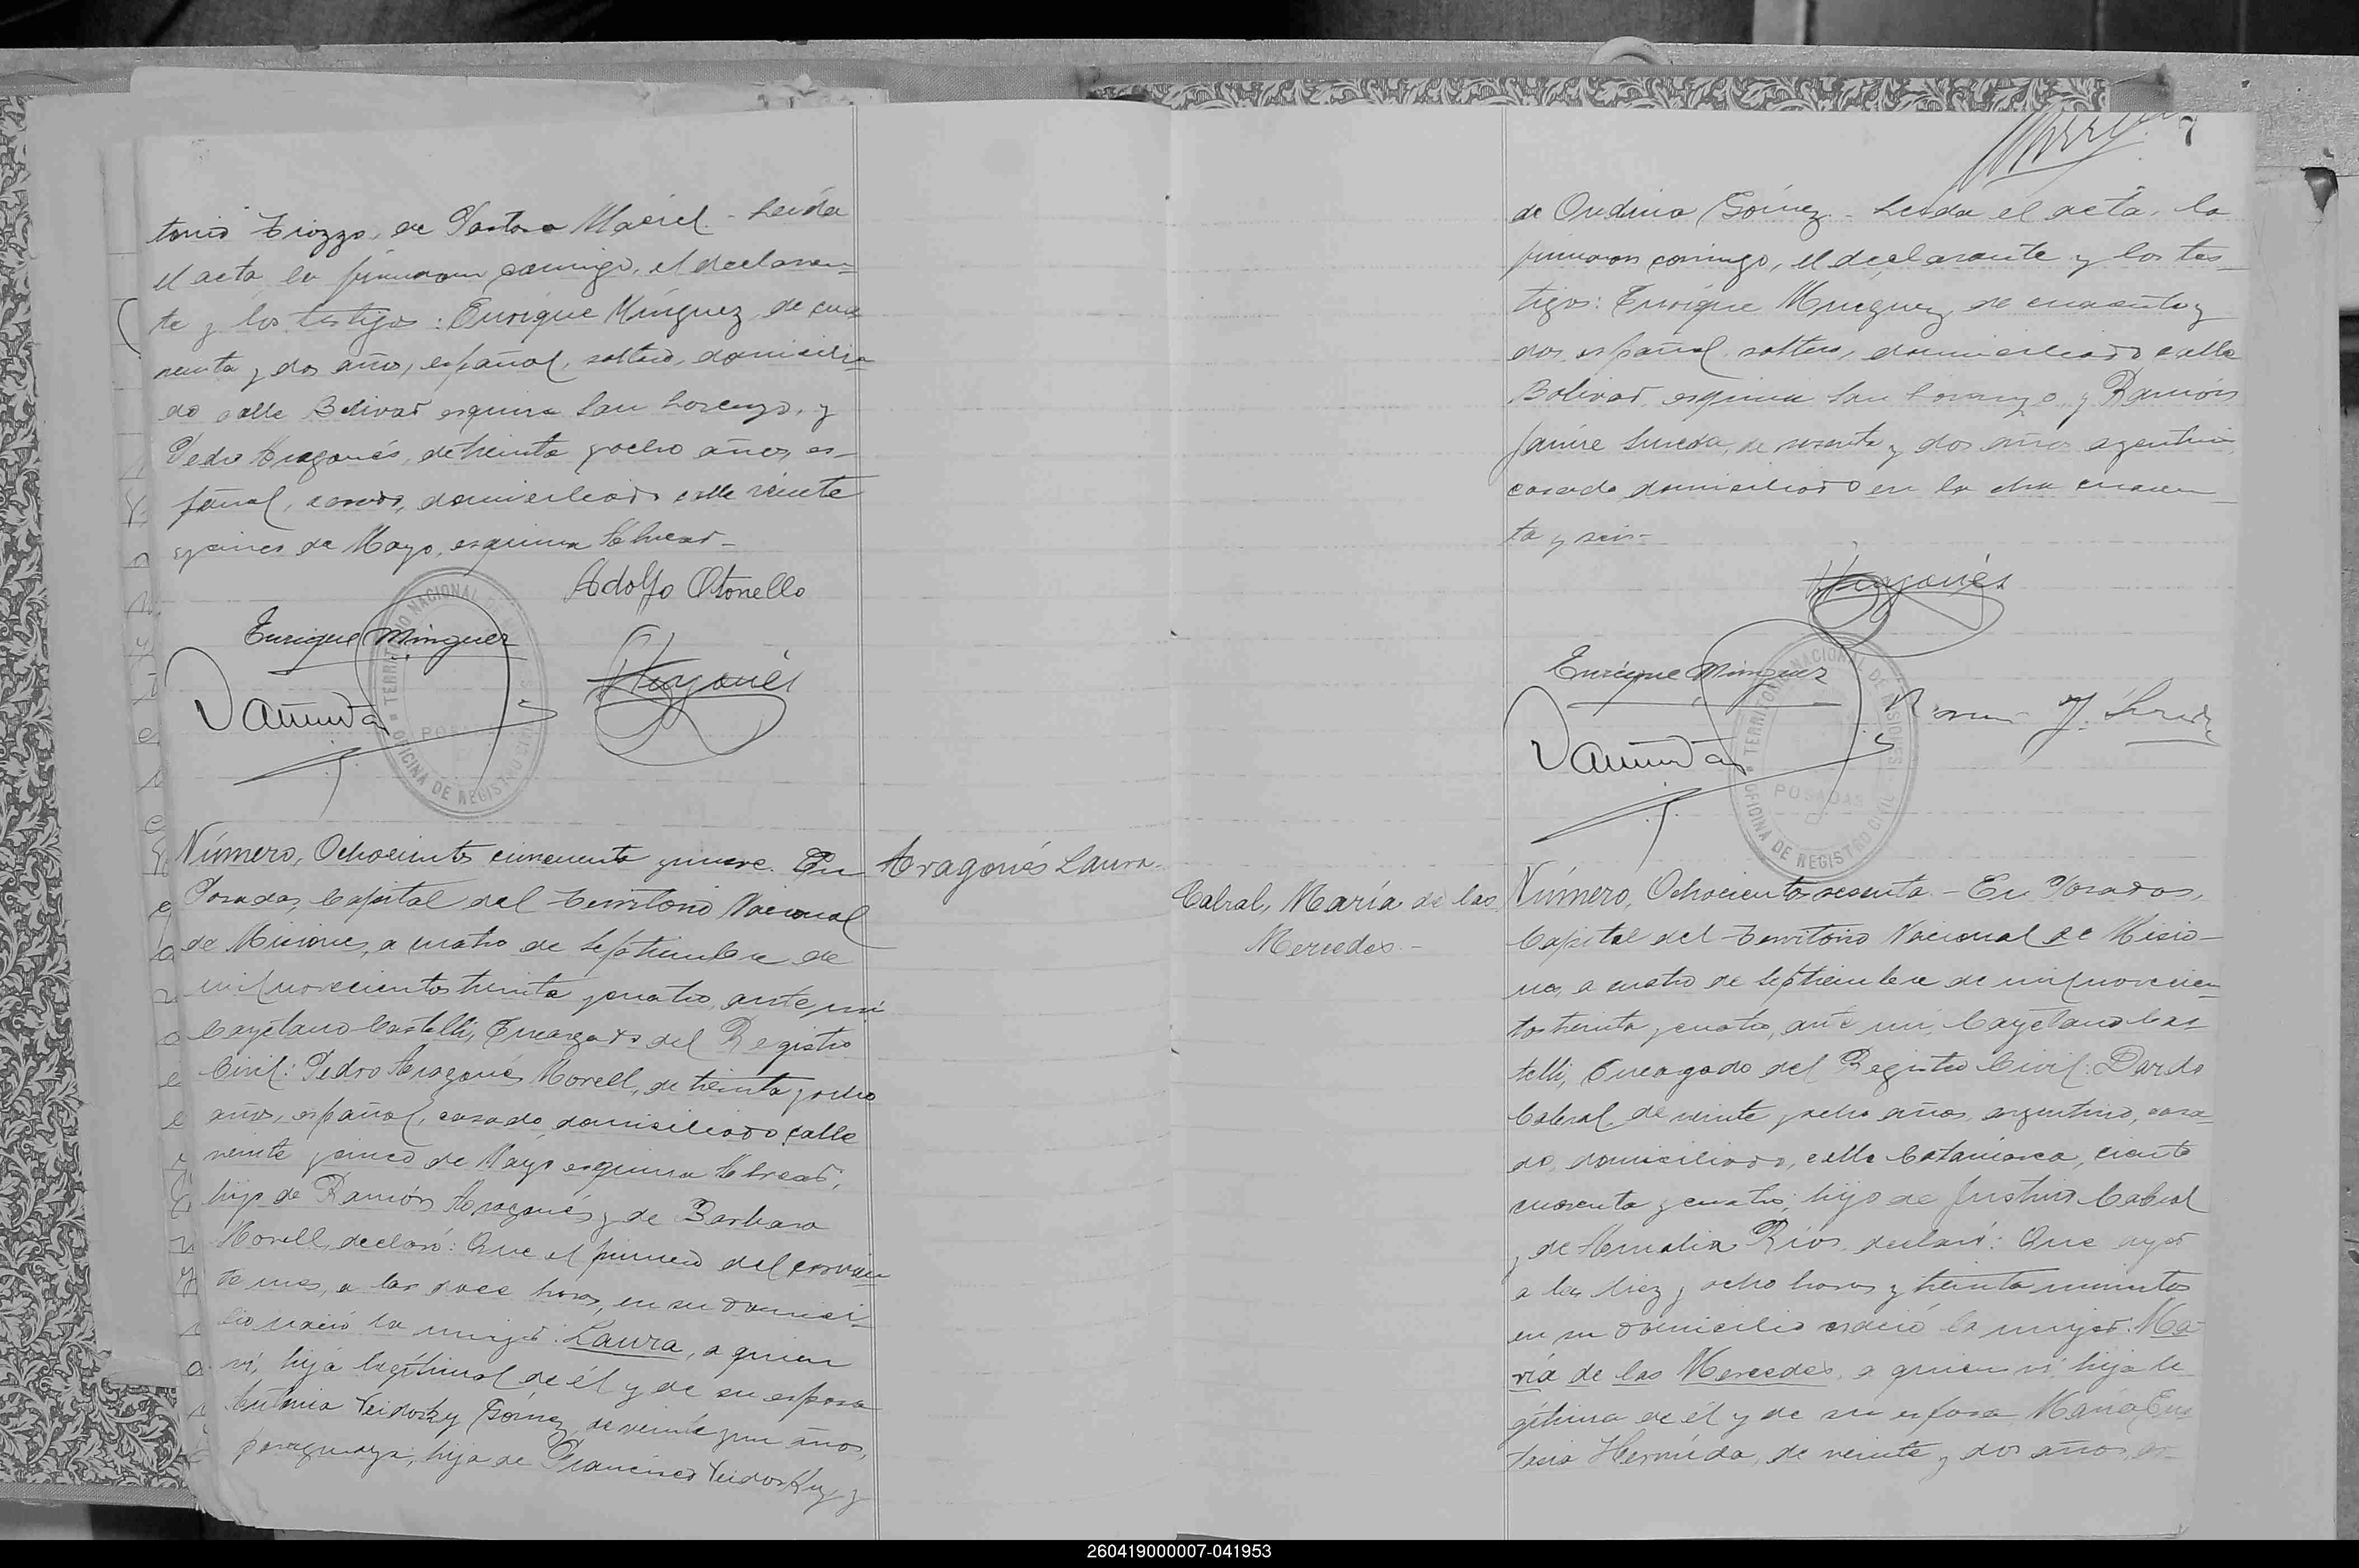 tonio Triozzo, de Pastora Maciel.- Leída
el acta la firmaron conmigo, el declaran=
te y los testigos: Enrique Mínguez, de cua
renta y dos años, español, soltero, domicilia=
do calle Bolivar esquina San Lorenzo, y
Pedro Aragonés, de treinta y ocho años, es-
pañol, casado, domiciliado calle veinte
y cinco de Mayo, esquina Alvear-
Adolfo Otonello
Enrique Minguez
Aragonés
TERRITORIO NACIONAL DE MISIONES
POSADAS
OFICINA DE REGISTRO CIVIL
Número, Ochocientos cincuenta y nueve. En
Posadas, Capital del Territorio Nacional
de Misiones, a cuatro de Septiembre de
mil novecientos treinta y cuatro, ante mí
Cayetano Castelli, Encargado del Registro
Civil: Pedro Aragonés Morell, de treinta y ocho
años, español, casado domiciliado calle
veinte y cinco de Mayo esquina Alvear,
hijo de Ramón Aragonés y de Barbara
Morell, declaró: Que el primero del corrien
te mes, a las doce horas, en su domici-
lio nació la mujer: Laura, a quien
ví, hija legítima de él y de su esposa
Antonia Gómez, de veinte y un años,
paraguaya; hija de Francisco y
Aragonés Laura.
7
de Ondina Gómez.- Leída el acta, la
firmaron conmigo, el declarante y los tes=
tigos: Enrique Minguez, de cuarenta y
dos, español, soltero, domiciliado calle
Bolivar esquina San Lorenzo, y Ramón
Jaime Sureda, de sesenta y dos años argentino,
casado domiciliado en la chra cuaren
ta y seis-
Aragonés
Enrique Minguez
Ramón J. Sureda
TERRITORIO NACIONAL DE MISIONES
POSADAS
OFICINA DE REGISTRO CIVIL
Cabral, María de las
Mercedes.-
Número, Ochocientos sesenta - En Posadas,
Capital del Territorio Nacional de Misio-
nes, a cuatro de Septiembre de mil novecien=
tos treinta y cuatro, ante mí, Cayetano Cas
telli, Encargado del Registro Civil: Dardo
Cabral, de veinte y ocho años, argentino, casa=
do, domiciliado, calle Catamarca, ciento
cuarenta y cuatro; hijo de Justino Cabral
y de Amalia Ríos, declaró: Que ayer
a las diez y ocho horas y treinta minutos
en su domicilio nació la mujer: Ma-
ría de las Mercedes, a quien ví, hija le-
gítima de él y de su esposa María
Hermida, de veinte y dos años, ar-
260419000007-041953